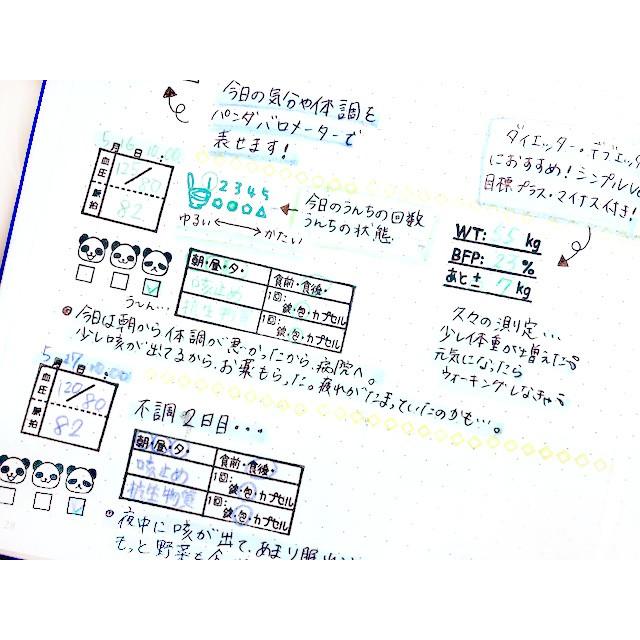 今日の気分や体調を
パンダバロメーターで
表せます!
ダイエッター・デブエッタ
におすすめ!シンプルLv
目標プラス・マイナス付き!
5 月 16 日: 10:00
血圧
80
脈拍 82
① 2 3 4 5
ゆるい ↔ かたい
今日のうんちの回数
うんちの状態
WT: 55 kg
BFP: 23 %
あと± 7 kg
う〜ん…
朝・昼・夕・ 食前・食後・
咳止め 1回: 錠・包・カプセル
抗生物質 1回: 錠・包・カプセル
久々の測定…
少し体重が増えた
元気になったら
ウォーキングしなきゃ
今日は朝から体調が悪かったから、病院へ。
少し咳が出てるから、お薬もらった。疲れがたまっていたのかも…。
5 月 17 日: 10:00
血圧 120/80
脈拍 82
不調2日目…
朝・昼・夕・ 食前・食後・
咳止め 1回: 錠・包・カプセル
抗生物質 1回: 錠・包・カプセル
夜中に咳が出て、あまり眠
もっと野菜も
28